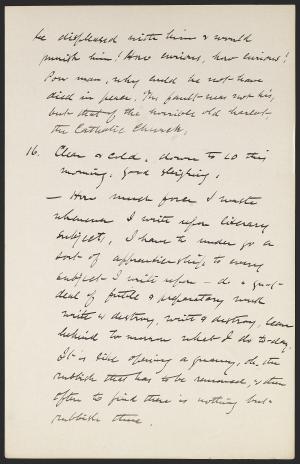 be displeased with him & would
punish him! How curious, how curious!
Poor man, why could he not have
died in peace. The fault was not his,
but that of the horrible old harlot
the Catholic Church.
16. Clear & cold, down to 10 this
morning, good sleighing.
— How much force I waste
whenever I write upon literary
subjects, I have to undergo a
sort of apprenticeship to every
subject I write upon — do a great
deal of futile & preparatory work
write & destroy, write & destroy, leave
behind to-morrow what I do to-day.
It is like opening a quarry, oh, the
rubbish that has to be removed, & then
often to find there is nothing but
rubbish there.